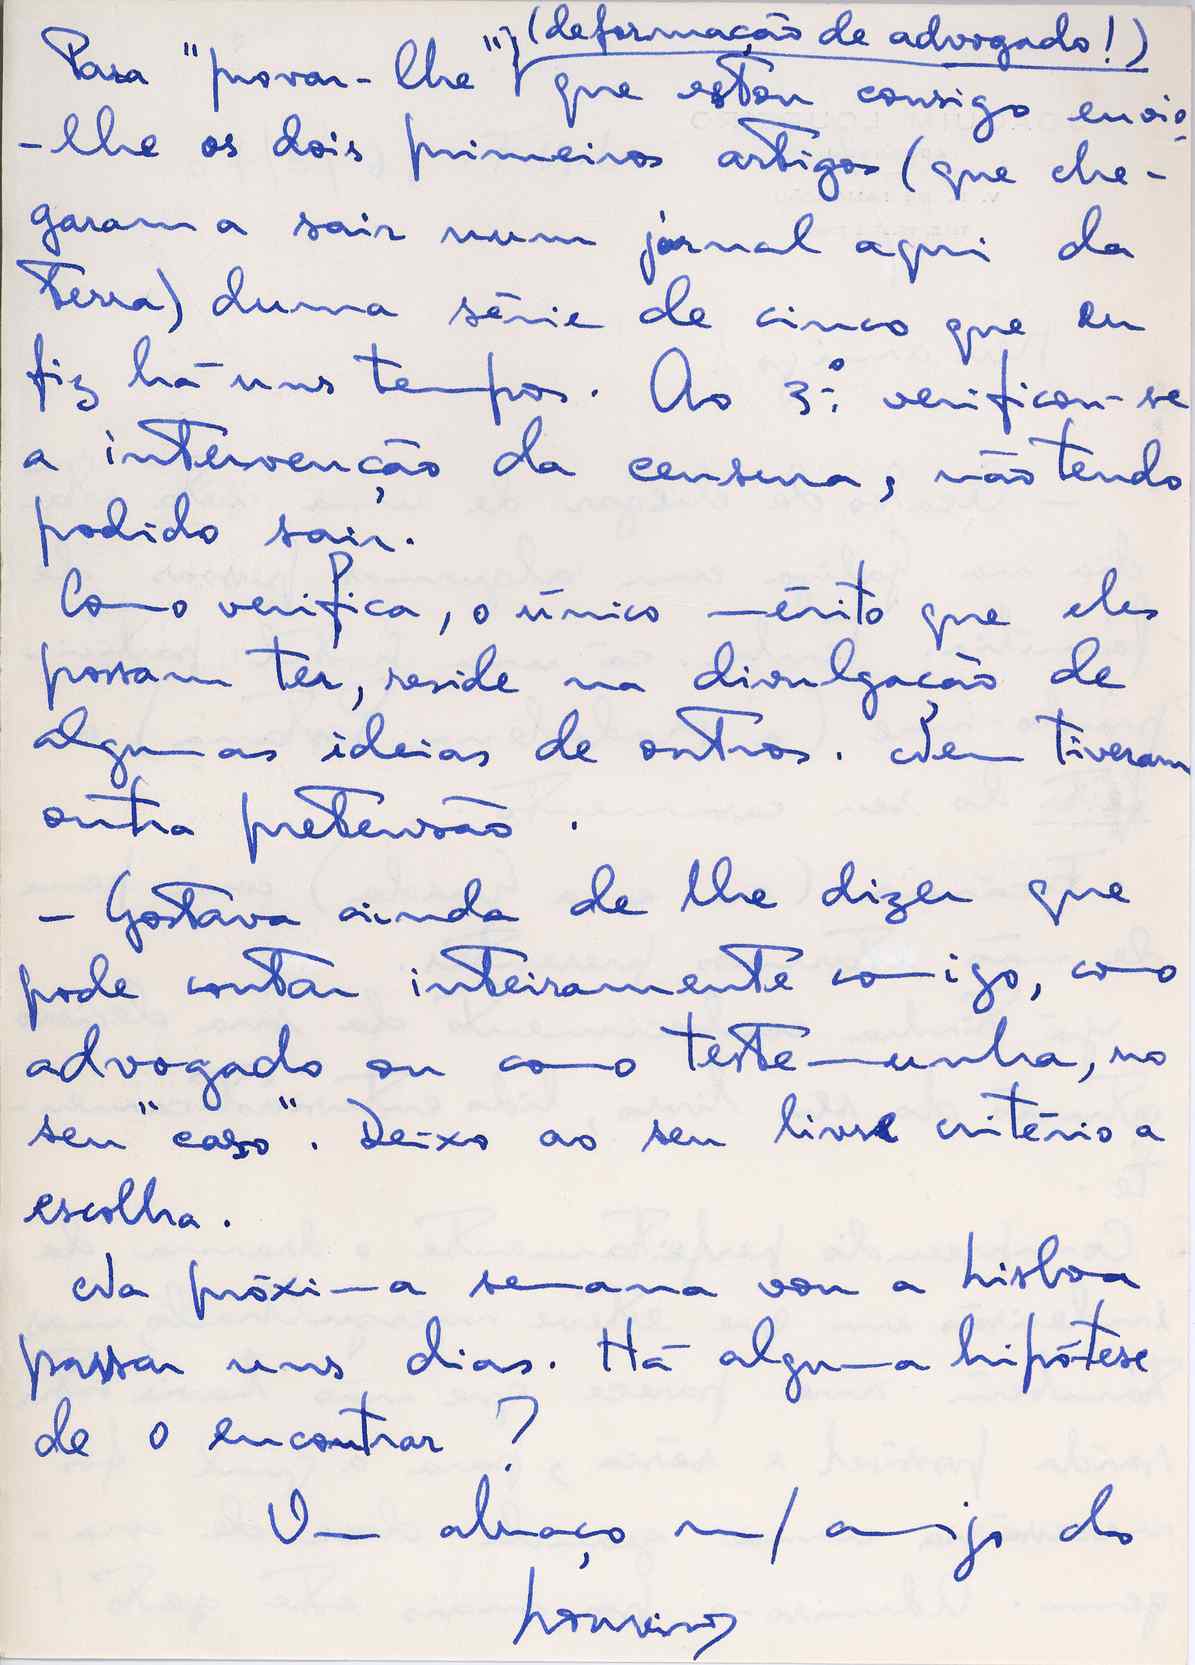 (deformação de advogado!)
Para "provar-lhe" que estou consigo envio-
-lhe os dois primeiros artigos (que che-
garam a sair num jornal aqui da
terra) duma série de cinco que eu
fiz há uns tempos. Ao 3.º verificou-se
a intervenção da censura, não tendo
podido sair.
Como verifica, o único mérito que eles
possam ter, reside na divulgação de
algumas ideias de outros. Nem tiveram
outra pretensão.
- Gostava ainda de lhe dizer que
pode contar inteiramente comigo, como
advogado ou como testemunha, no
seu "caso". Deixo ao seu livre critério a
escolha.
Na próxima semana vou a Lisboa
passar uns dias. Há alguma hipótese
de o encontrar?
Um abraço m/ amigo do
Loureiro